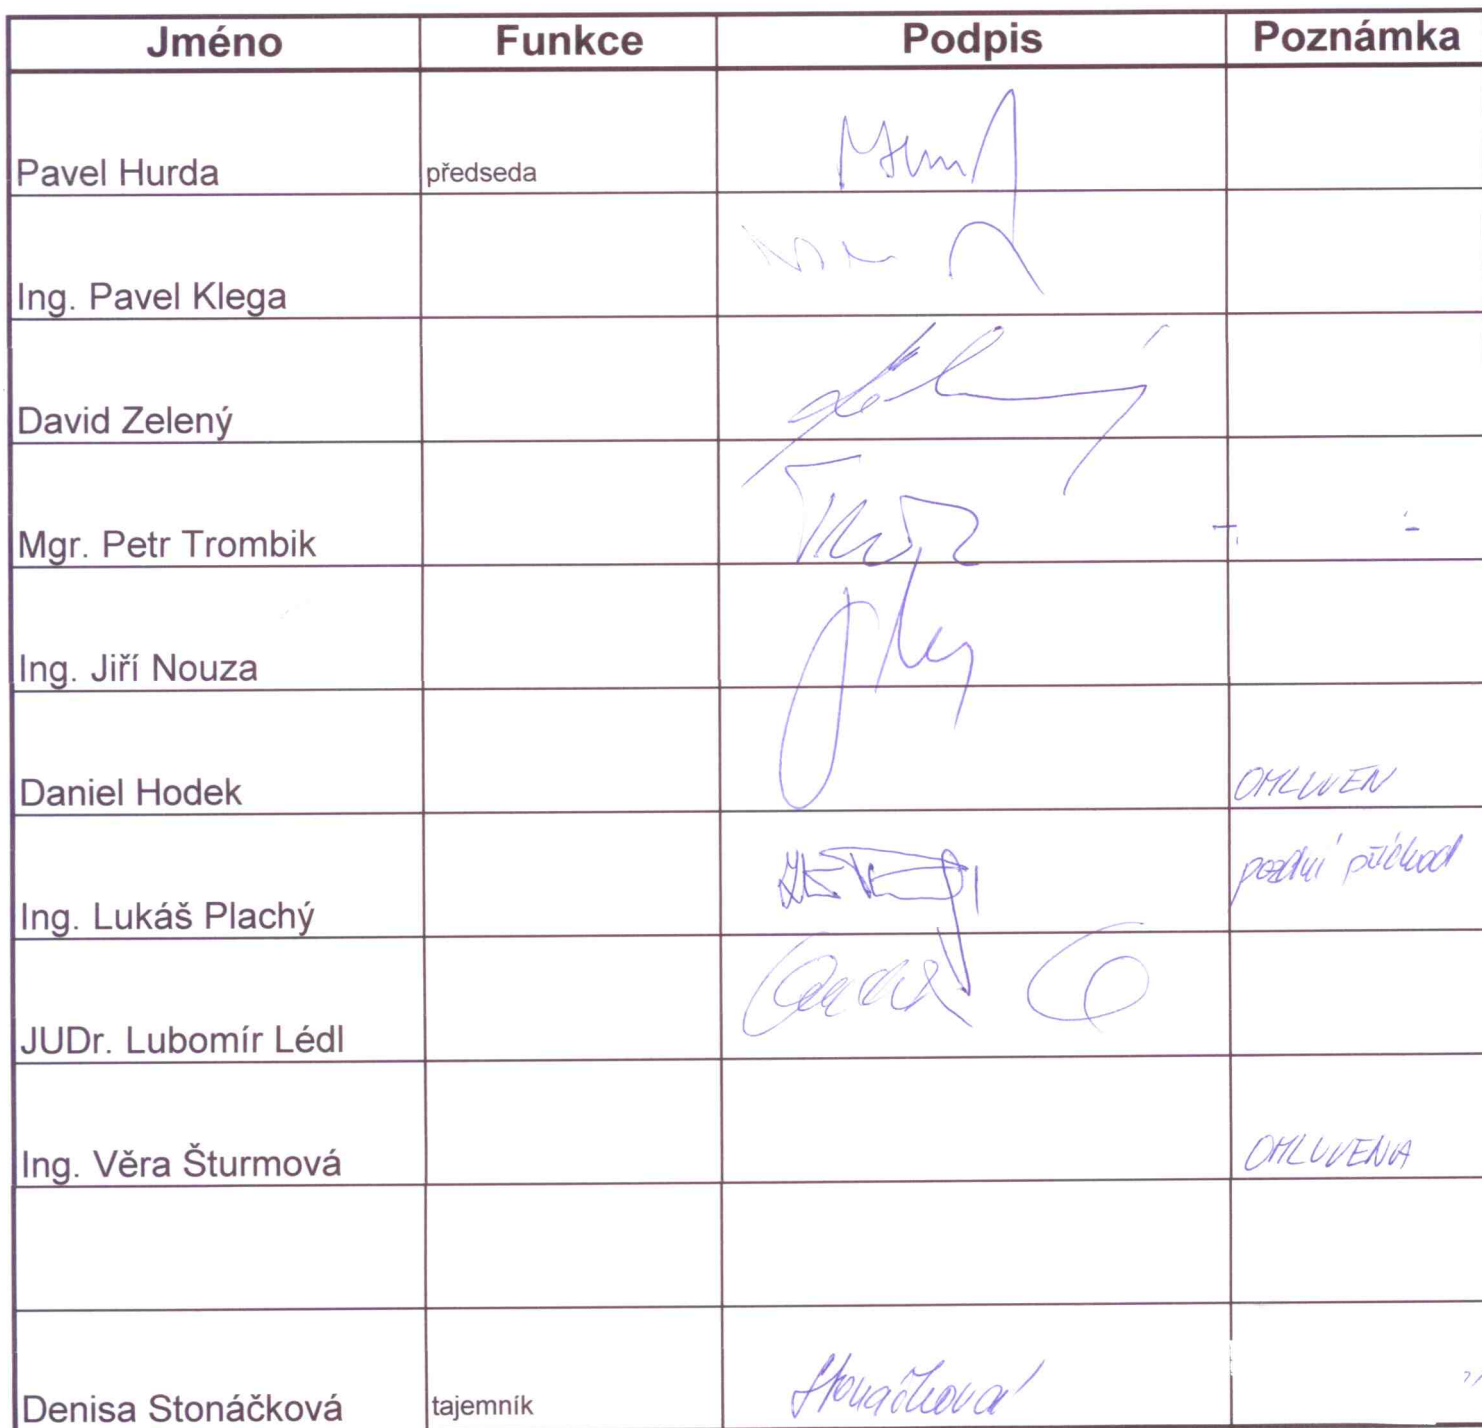 Jméno Funkce Podpis Poznámka
Pavel Hurda předseda
Ing. Pavel Klega
David Zelený
Mgr. Petr Trombik
Ing. Jiří Nouza
Daniel Hodek OMLUVEN
Ing. Lukáš Plachý pozdní příchod
JUDr. Lubomír Lédl
Ing. Věra Šturmová OMLUVENA
Denisa Stonáčková tajemník Stonáčková